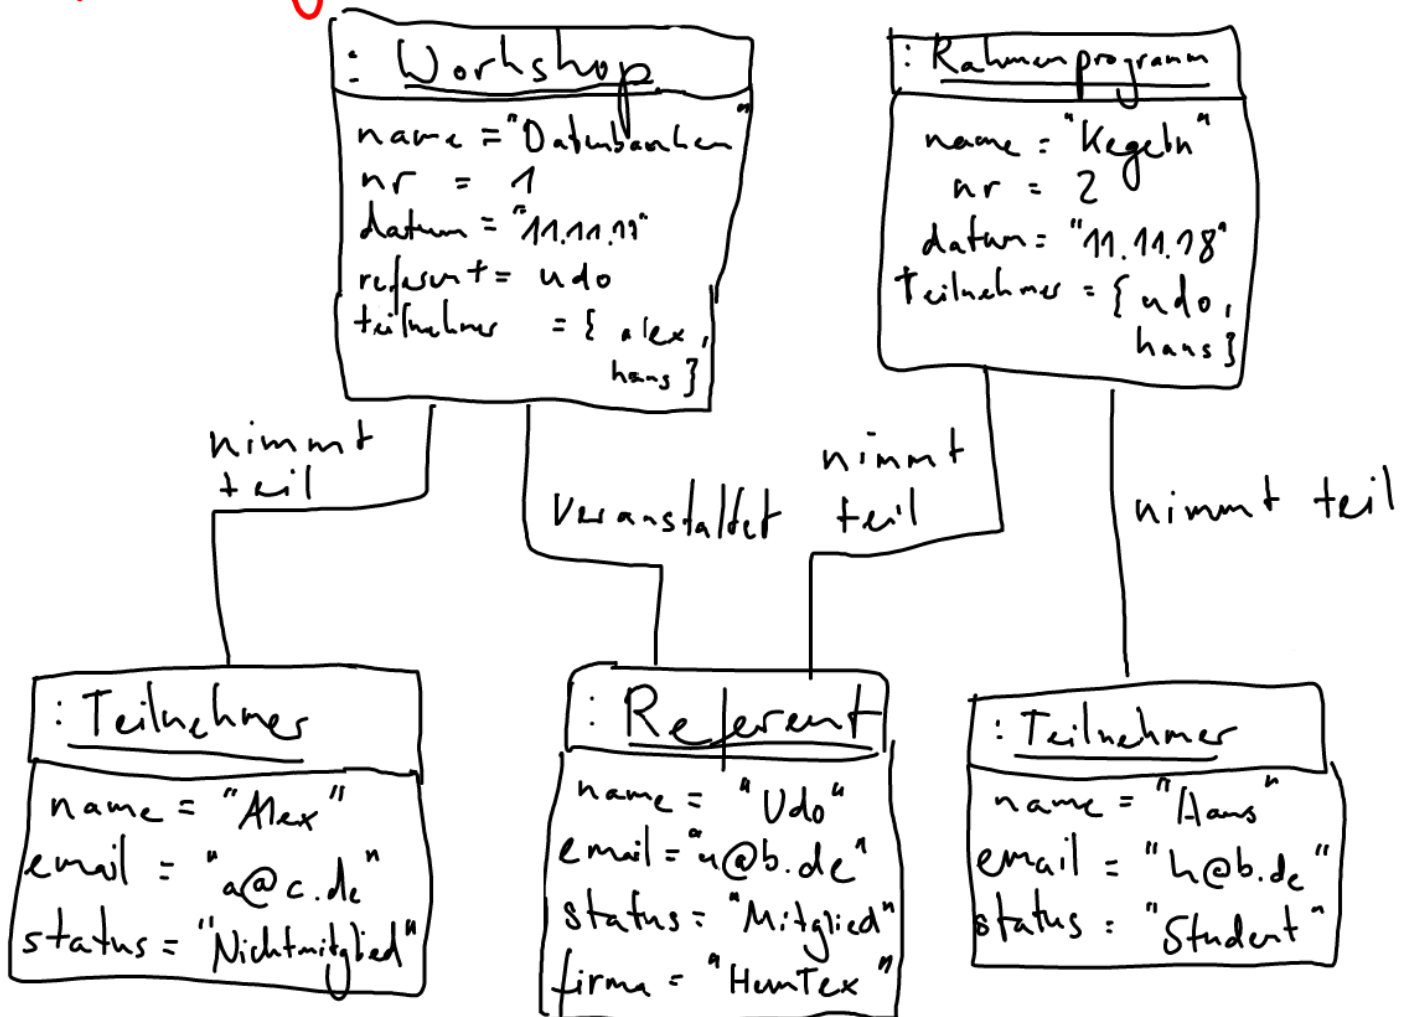 : Workshop
name = "Datenbanken"
nr = 1
datum = "11.11.18"
referent = udo
teilnehmer = { alex,
hans }
: Rahmenprogramm
name = "Kegeln"
nr = 2
datum = "11.11.18"
Teilnehmer = { udo,
hans }
nimmt
teil
veranstaltet
nimmt
teil
nimmt teil
: Teilnehmer
name = "Alex"
email = "a@c.de"
status = "Nichtmitglied"
: Referent
name = "Udo"
email = "u@b.de"
status = "Mitglied"
firma = "HumTex"
: Teilnehmer
name = "Hans"
email = "h@b.de"
status = "Student"